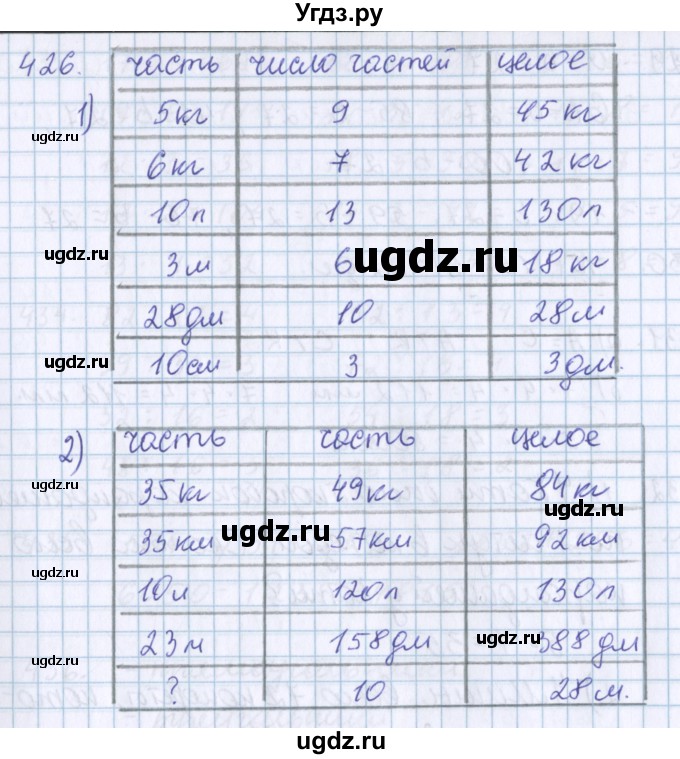 Угдз.ру
426. часть число частей целое
1) 5кг 9 45кг
ugdz.ru
6кг 7 42кг
10л 13 130л
ugdz.ru
3м 6 ugdz.ru 18кг
28дм 10 28м
ugdz.ru
10см 3 3дм.
2) часть часть целое
ugdz.ru
35кг 49кг 84кг
ugdz.ru
35км 57км 92км
ugdz.ru
ugdz.ru
10л 120л 130л
23м 158дм 388дм
ugdz.ru
ugdz.ru
? 10 28м.
ugdz.ru